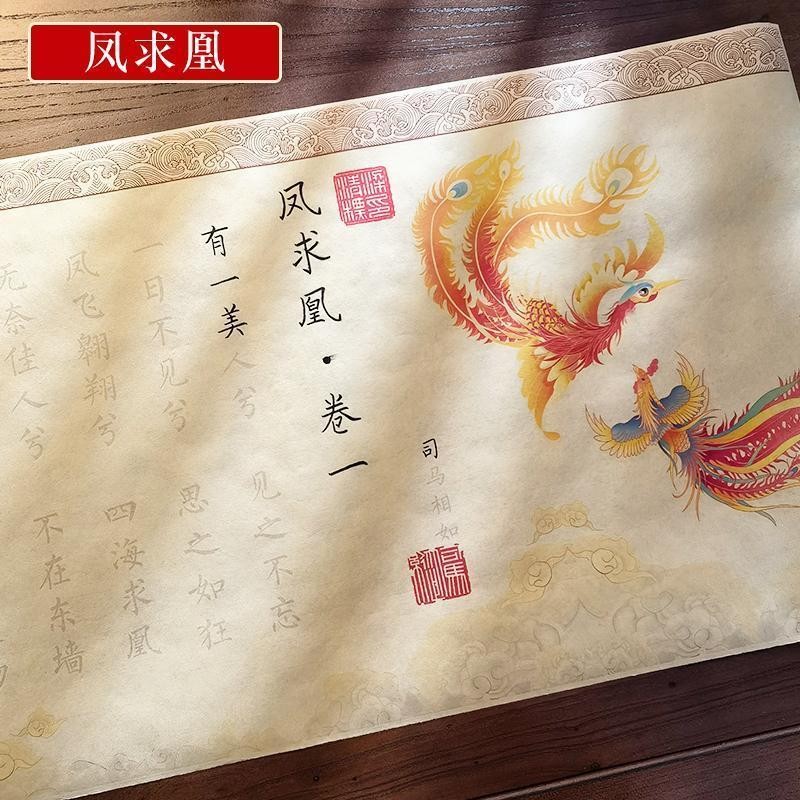 凤求凰
凤求凰·卷一
司马相如
有一美人兮
见之不忘
一日不见兮
思之如狂
凤飞翱翔兮
四海求凰
无奈佳人兮
不在东墙